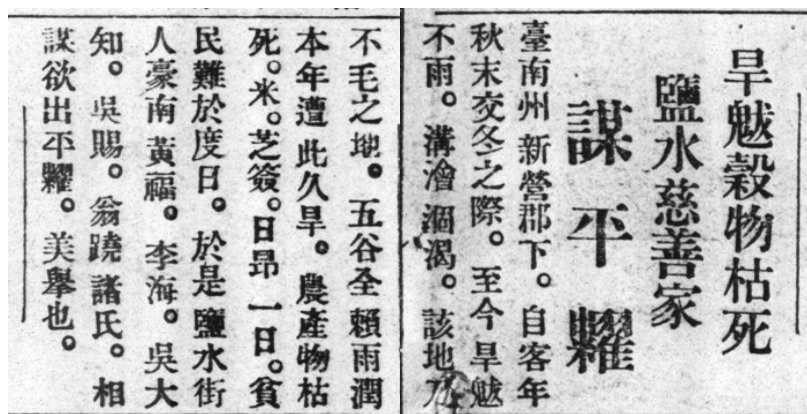 旱魃穀物枯死
鹽水慈善家
謀平糶
臺南州新營郡下。自客年
秋末交冬之際。至今旱魃
不雨。溝澮涸渴。該地
不毛之地。五谷全賴雨潤
本年遭此久旱。農產物枯
死。米。芝簽。日昂一日。貧
民難於度日。於是鹽水街
人豪南黃福。李海。吳大
知。吳賜。翁蹺諸氏。相
謀欲出平糶。美舉也。